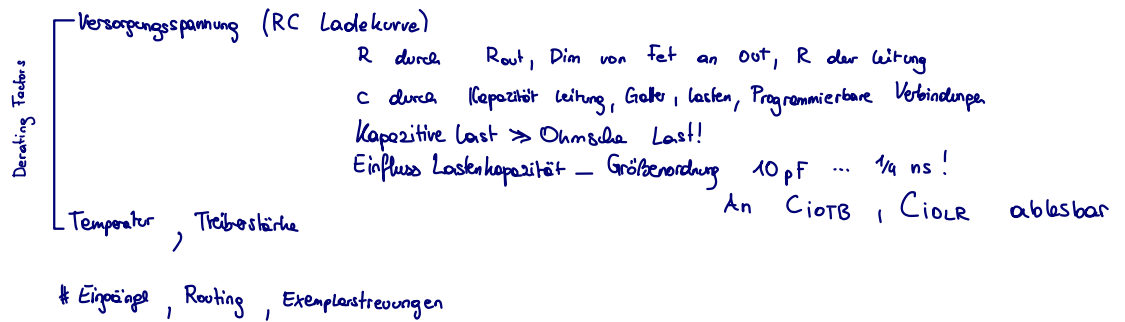 Derating Factors
Versorgungsspannung (RC Ladekurve)
R durch Rout, Dim von Fet an out, R der Leitung
C durch Kapazität Leitung, Gatter, Lasten, Programmierbare Verbindungen
Kapazitive Last >> Ohmsche Last!
Einfluss Lastenkapazität – Größenordnung 10 pF ... 1/4 ns!
An CIOTB, CIOLR ablesbar
Temperatur, Treiberstärke
# Eingänge, Routing, Exemplarstreuungen